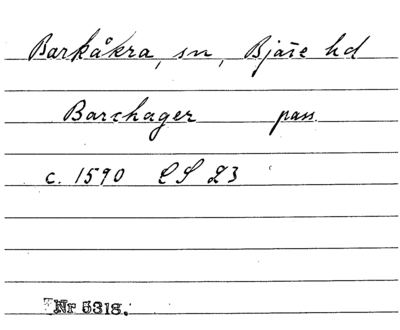 Barkåkra, sn, Bjäre hd
Barchager pass.
c. 1590 LS L3
Nr 5318.